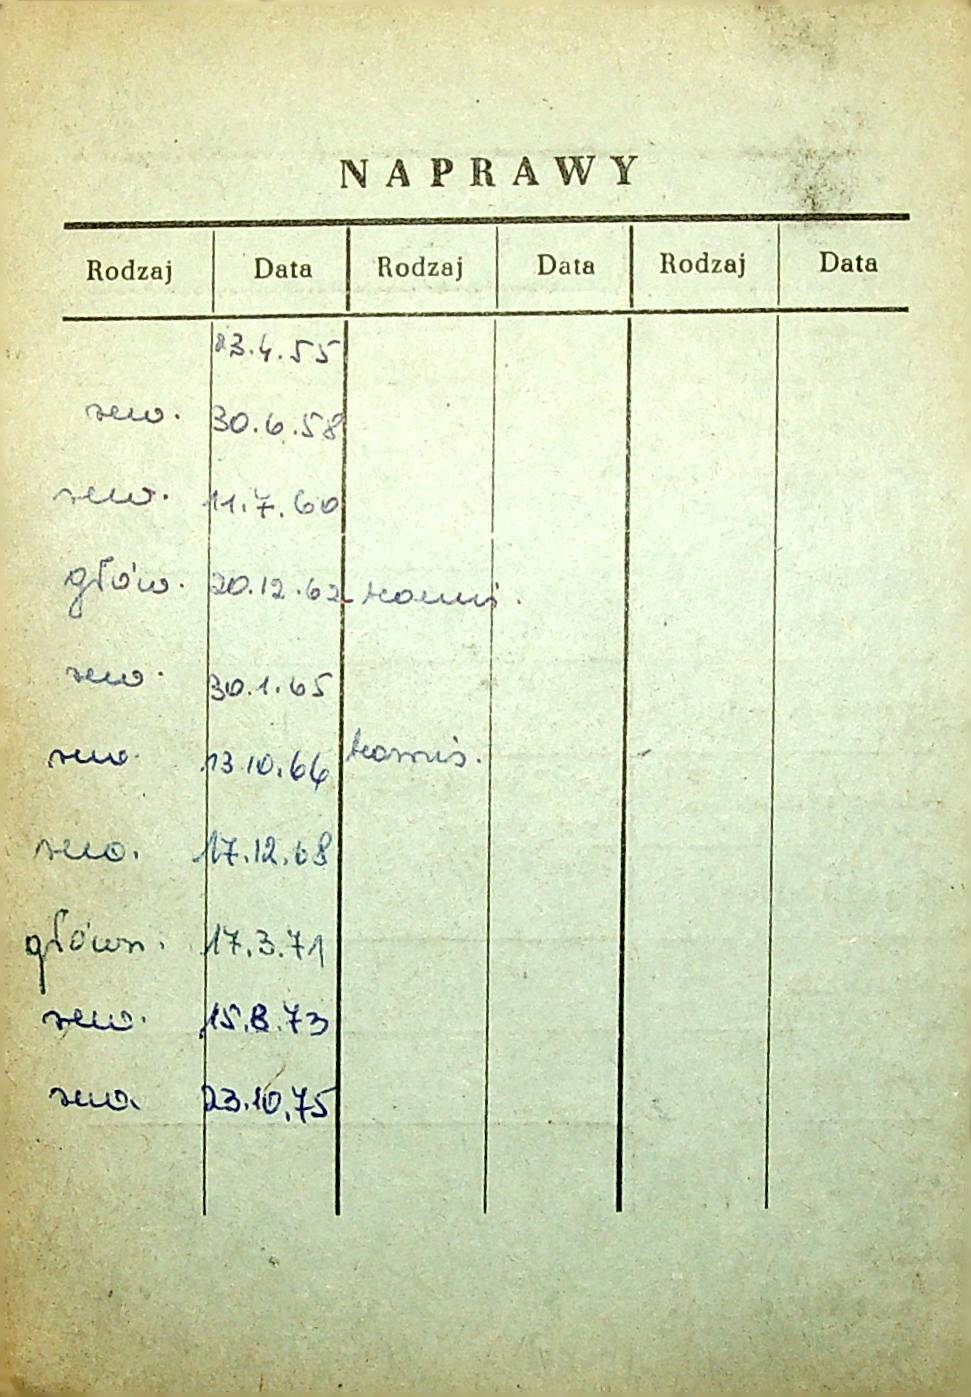 NAPRAWY
Rodzaj Data Rodzaj Data Rodzaj Data
23.4.55
rew. 30.6.58
rew. 11.7.60
głów. 20.12.62 komis.
rew. 30.1.65
rew. 13.10.66 komis.
rew. 17.12.68
główn. 17.3.71
rew. 15.8.73
rew. 23.10.75